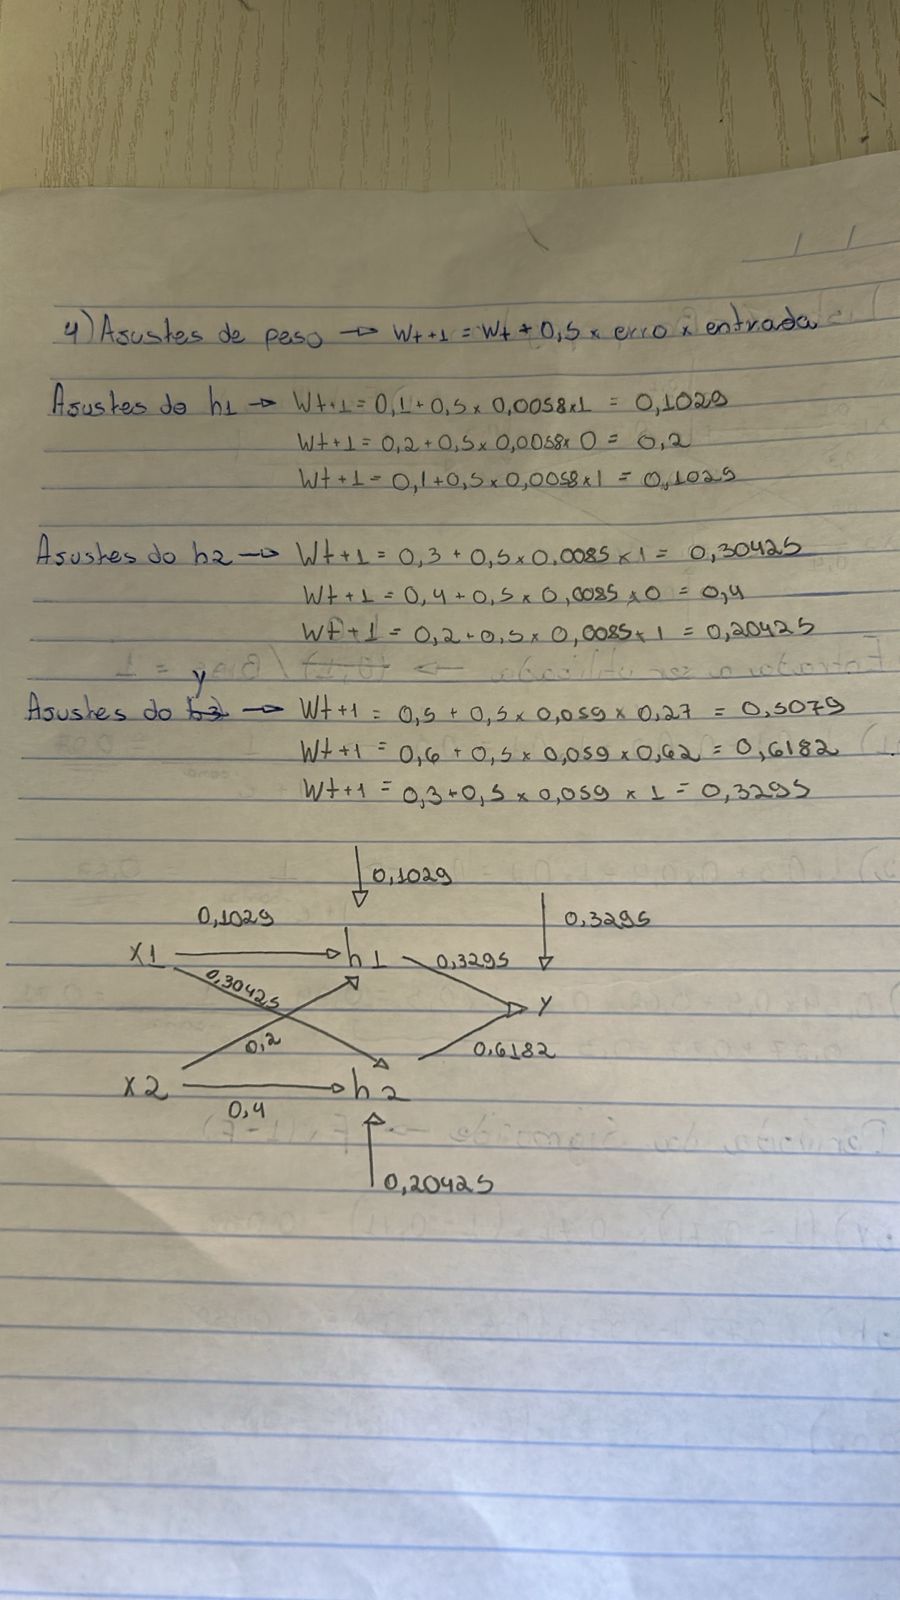 4) Ajustes de peso → Wt+1 = Wt + 0,5 x erro x entrada
Ajustes do h1 → Wt+1 = 0,1 + 0,5 x 0,0058 x 1 = 0,1029
Wt+1 = 0,2 + 0,5 x 0,0058 x 0 = 0,2
Wt+1 = 0,1 + 0,5 x 0,0058 x 1 = 0,1029
Ajustes do h2 → Wt+1 = 0,3 + 0,5 x 0,0085 x 1 = 0,30425
Wt+1 = 0,4 + 0,5 x 0,0085 x 0 = 0,4
Wt+1 = 0,2 + 0,5 x 0,0085 x 1 = 0,20425
Ajustes do y → Wt+1 = 0,5 + 0,5 x 0,059 x 0,27 = 0,5079
Wt+1 = 0,6 + 0,5 x 0,059 x 0,62 = 0,6182
Wt+1 = 0,3 + 0,5 x 0,059 x 1 = 0,3295
0,1029
0,1029
0,3295
x1
h1
0,3295
0,30425
y
0,2
0,6182
x2
h2
0,4
0,20425